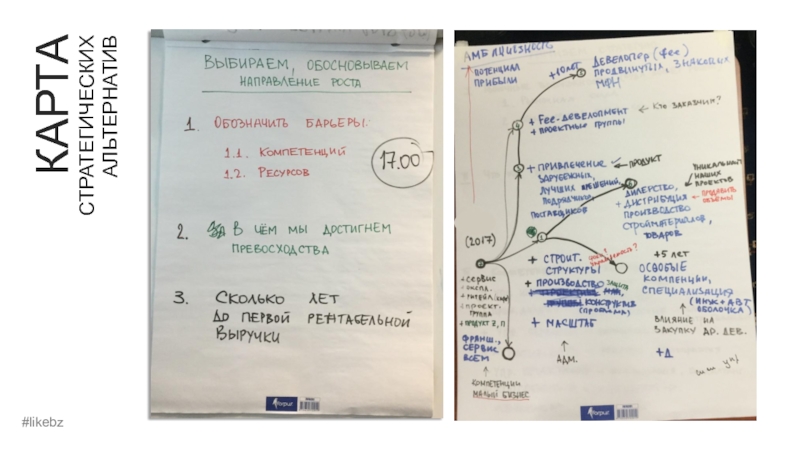 КАРТА
СТРАТЕГИЧЕСКИХ
АЛЬТЕРНАТИВ
ВЫБИРАЕМ, ОБОСНОВЫВАЕМ
НАПРАВЛЕНИЕ РОСТА
1. ОБОЗНАЧИТЬ БАРЬЕРЫ:
1.1. КОМПЕТЕНЦИЙ
1.2. РЕСУРСОВ
17.00
2. В ЧЁМ МЫ ДОСТИГНЕМ
ПРЕВОСХОДСТВА
3. СКОЛЬКО ЛЕТ
ДО ПЕРВОЙ РЕНТАБЕЛЬНОЙ
ВЫРУЧКИ
forpus
АМБИЦИОЗНОСТЬ
ПОТЕНЦИАЛ
ПРИБЫЛИ
+10 ЛЕТ
ДЕВЕЛОПЕР (fee)
ПРОДВИНУТЫХ, ЗНАКОВЫХ
+ Fee-ДЕВЕЛОПМЕНТ
+ ПРОЕКТНЫЕ ГРУППЫ
← КТО ЗАКАЗЧИК?
+ ПРИВЛЕЧЕНИЕ
ЗАРУБЕЖНЫХ,
ЛУЧШИХ РЕШЕНИЙ,
ПОДРЯДЧИКОВ,
ПОСТАВЩИКОВ
← ПРОДУКТ
УНИКАЛЬНЫХ
НАШИХ
ПРОЕКТОВ
ДИЛЕРСТВО,
+ ДИСТРИБУЦИЯ
ПРОИЗВОДСТВО
СТРОЙМАТЕРИАЛОВ,
ТОВАРОВ
← ПРОДАВАТЬ
ОБЪЁМЫ
(2017)
+ СЕРВИС
+ ЭКСПЛ.
+ ПРОЕКТ.
ГРУППА
+ ПРОДУКТ 2, П
+ СТРОИТ.
СТРУКТУРЫ
+ ПРОИЗВОДСТВО
КОНСТРУКТИВ
+ МАСШТАБ
↑
АДМ.
+5 ЛЕТ
ОСОБЫЕ
КОМПЕНЦЫИ,
СПЕЦИАЛИЗАЦИЯ
ОБОЛОЧКА)
ВЛИЯНИЕ НА
ЗАКУПКУ ДР. ДЕВ.
+Д
ФРАНШ.,
СЕРВИС
ВСЕМ
↑
КОМПЕТЕНЦИИ
МАЛЫЙ БИЗНЕС
forpus
#likebz